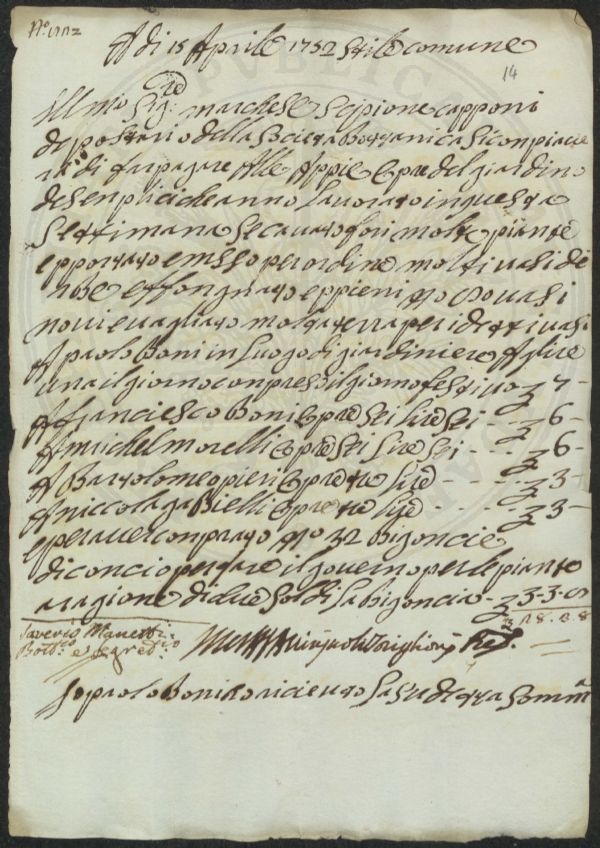 A di 15 Aprile 1752 stile comune
14
Ill.mo Sig.re marchese scipione capponi
depositario della Società Botanica si conpiacie
rà di far pagare Alle Appie Opre del giardino
de senplici che anno lavorato in questa
Settimana se cavato fori molte piante
e pportato e messo per ordine molti vasi di
e ppieni no vasi
novi e vagliato molta terra per i detti vasi
A paolo Boni in luogo di giardiniere A lire
una il giorno conpreso il giorno festivo 7 -
A franciesco Boni opre sei lire sei - - 6 -
A michel morelli opre sei lire sei - - - 6 -
A Bartolomeo pieri opre tre lire - - - - 3 -
A niccola gabielli opre tre lire - - - - 3 -
e per aver conprato no 32 bigoncie
di concio per fare il governo per le piante
a ragione di due soldi la bigoncia - 3 - 3 -
28
Saverio Manetti
Bott.o e Segret.rio
Io paolo Boni ò riciento la su detta somma